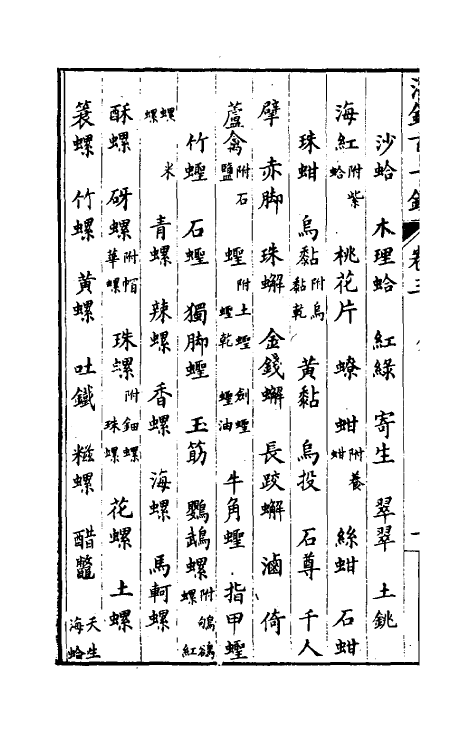 海錯百一錄 卷三
沙蛤 木理蛤 紅綠 寄生 翠翠 土銚
海紅附紫蛤 桃花片 蟟 蚶附養蚶 絲蚶 石蚶
珠蚶 烏黏附烏黏乾 黃黏 烏投 石尊 千人
擘 赤脚 珠蠏 金錢蠏 長跤蠏 滷 倚
蘆禽附石鹽 蟶附土蟶 劍蟶 蟶乾 蟶油 牛角蟶 指甲蟶
竹蟶 石蟶 獨脚蟶 玉筋 鸚鵡螺附鴝鵒螺 紅
螺 米螺 青螺 辣螺 香螺 海螺 馬軻螺
酥螺 砑螺附㡌華螺 珠螺附鈿螺 珠螺 花螺 土螺
簑螺 竹螺 黃螺 吐鐵 糍螺 醋鼈 天生海蛤